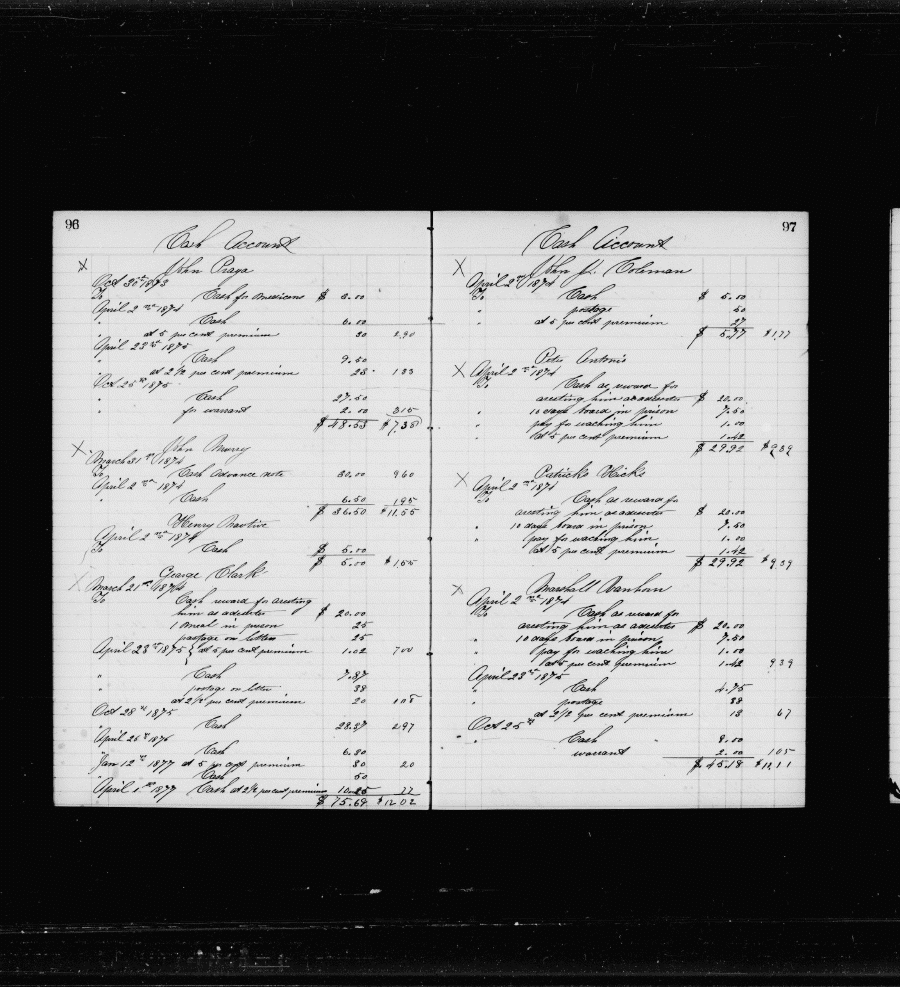 96
Cash Account
X John Praga
Oct 30th 1873
To Cash for Mexicans $ 3.00
April 2nd 1874
" Cash 6.00
" at 5 per cent premium 30 2.90
April 23rd 1875
" Cash 9.50
" at 2 1/2 per cent premium 23 1 33
Oct 25th 1875
" Cash 27.50
" for warrant 2.00 3 15
$ 48.53 $ 7,38
X John Murry
March 31st 1874
To Cash Advance note 30.00 9 60
April 2nd 1874
" Cash 6.50 1 95
$ 36.50 $ 11,55
Henry
April 2nd 1874
To Cash $ 5.00
$ 5.00 $ 1,55
X George Clark
March 21st 1874
To Cash reward for aresting
him as adesotes $ 20.00
1 meal in prison 25
postage on letters 25
April 23rd 1875 { at 5 per cent premium 1.02 7 00
" Cash 7.87
" postage on letter 38
" at 2 1/2 per cent premium 20 1 08
Oct 28th 1875
" Cash 28.37 2 97
April 26th 1876
" Cash 6.80
Jan 12th 1877 at 5 per cent premium 30 20
" Cash 50
April 1st 1877 Cash at 2 1/2 per cent premium 10.25 77
$ 75.69 $ 12 02
97
Cash Account
X John H. Coleman
April 2nd 1874
To Cash $ 5.00
" postage 50
" at 5 per cent premium 27
$ 5.77 $ 1,77
Peter Antonis
X April 2nd 1874
To Cash as reward for
aresting him as adesotes $ 20.00
" 10 days board in prison 7.50
" pay for waching him 1.00
" at 5 per cent premium 1.42
$ 29.92 $ 9,39
Patricks Hicks
X April 2nd 1874
To Cash as reward for
aresting him as adesotes $ 20.00
" 10 days board in prison 7.50
" pay for waching him 1.00
" at 5 per cent premium 1.42
$ 29.92 $ 9,39
X Marshall Vanhorn
April 2nd 1874
To Cash as reward for
aresting him as adesotes $ 20.00
" 10 days board in prison 7.50
" pay for waching him 1.00
" at 5 per cent premium 1.42 9 39
April 23rd 1875
" Cash 4.75
" postage 38
" at 2 1/2 per cent premium 13 67
Oct 25th
" Cash 8.00
warrant 2.00 1 05
$ 45.18 $ 11 11